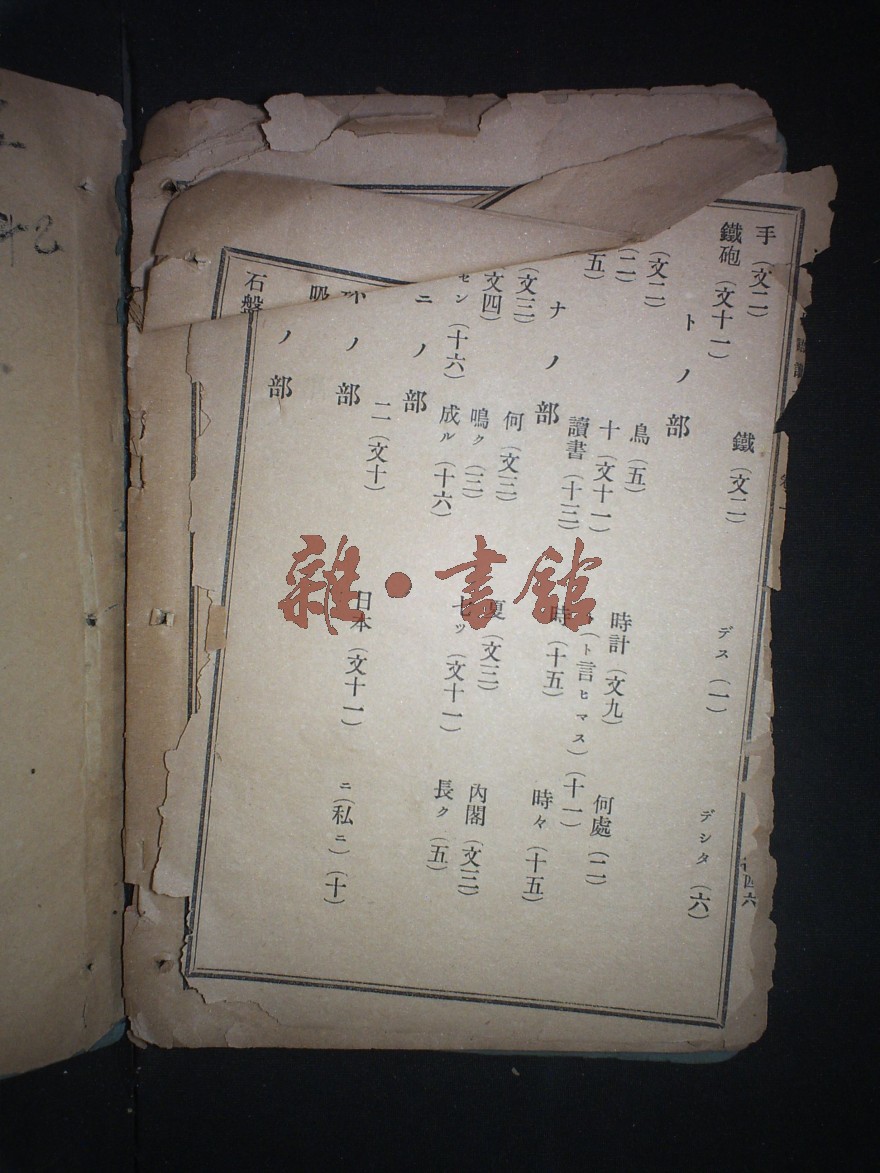 手（文二）
鐵（文二）
デス（一）
デシタ（六）
鐵砲（文十一）
トノ部
（文二）
鳥（五）
時計（文九）
何處（二）
（二）
十（文十一）
（ト言ヒマス）（十一）
五）
讀書（十三）
時（十五）
時々（十五）
ナノ部
（文三）
何（文三）
夏（文三）
內閣（文三）
文四）
鳴ク（三）
七ツ（文十一）
長ク（五）
セン（十六）
成ル（十六）
ニノ部
二（文十）
日本（文十一）
ニ（私ニ）（十）
ノ部
吸
ノ部
石盤
四六
雜·書館